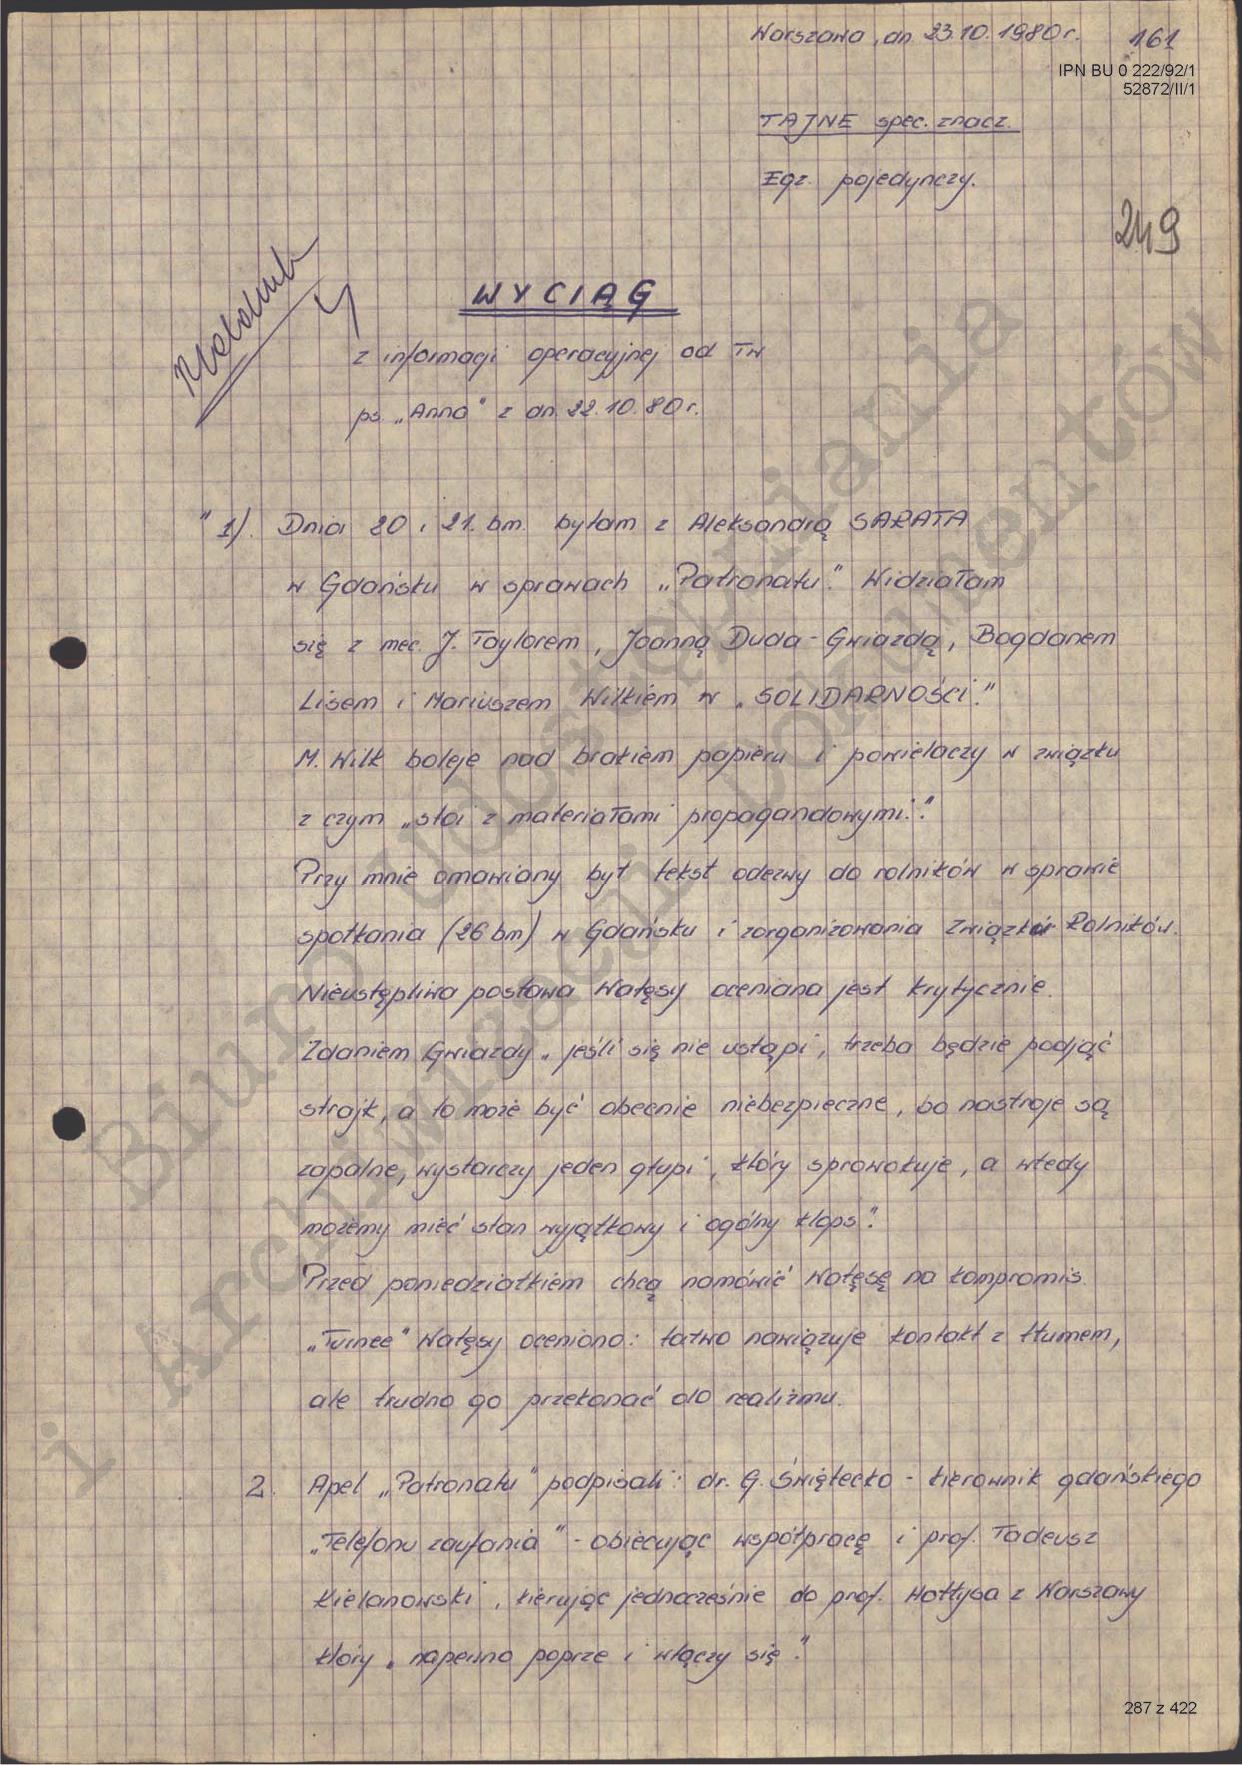 Warszawa, dn. 23.10.1980 r. 161
IPN BU 0 222/92/1
52872/II/1
TAJNE spec. znacz.
Egz. pojedynczy.
249
WYCIĄG
z informacji operacyjnej od TW
ps. „Anna" z dn. 22.10.80 r.
" 1). Dnia 20 i 21. bm. byłam z Aleksandrą SARATA
w Gdańsku w sprawach „Patronatu". Widziałam
się z mec. J. Taylorem, Joanną Duda-Gwiazdą, Bogdanem
Lisem i Mariuszem Wilkiem w „SOLIDARNOŚCI."
M. Wilk boleje nad brakiem papieru i powielaczy w związku
z czym „stoi z materiałami propagandowymi."
Przy mnie omawiany był tekst odezwy do rolników w sprawie
spotkania (26 bm) w Gdańsku i zorganizowania Związku Rolników.
Nieustępliwa postawa Wałęsy oceniana jest krytycznie.
Zdaniem Gwiazdy „jeśli się nie ustąpi, trzeba będzie podjąć
strajk, a to może być obecnie niebezpieczne, bo nastroje są
zapalne, wystarczy jeden głupi, który sprowokuje, a wtedy
możemy mieć stan wyjątkowy i ogólny klops".
Przed poniedziałkiem chcą namówić Wałęsę na kompromis.
„Turnee" Wałęsy oceniono: łatwo nawiązuje kontakt z tłumem,
ale trudno go przekonać do realizmu.
2. Apel „Patronatu" podpisali: dr. G. Świątecko - kierownik gdańskiego
„Telefonu zaufania" - obiecując współpracę i prof. Tadeusz
Kielanowski, kierując jednocześnie do prof. Hołtysa z Warszawy
który „napewno poprze i włączy się."
287 z 422
Biuro Udostępniania
i Archiwizacji Dokumentów